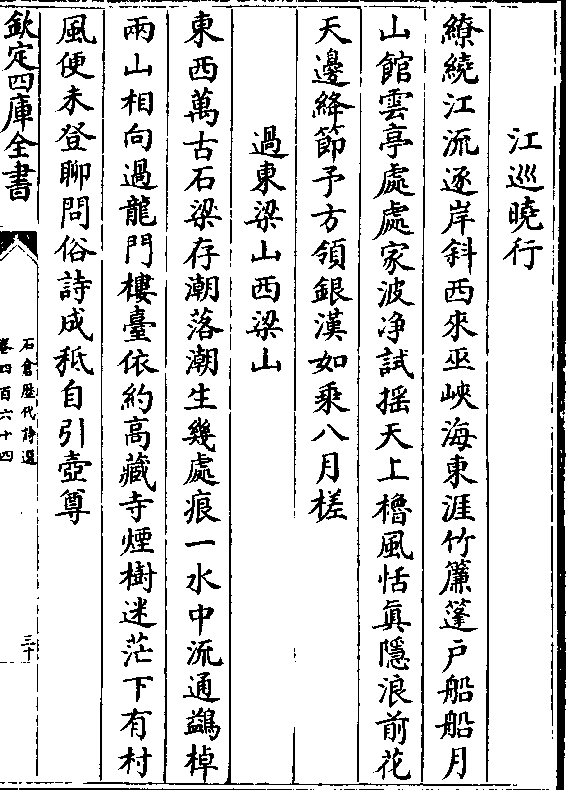 江巡曉行
繚繞江流逐岸斜西來巫峽海東涯竹簾蓬戶船船月
山館雲亭處處家波净試摇天上櫓風恬真隱浪前花
天邊絳節予方領銀漢如乘八月槎
過東梁山西梁山
東西萬古石梁存潮落潮生幾處痕一水中流通鷁棹
兩山相向過龍門樓臺依約高藏寺煙樹迷茫下有村
風便未登聊問俗詩成秪自引壺尊
欽定四庫全書
石倉歷代詩選
卷四百六十四
三十